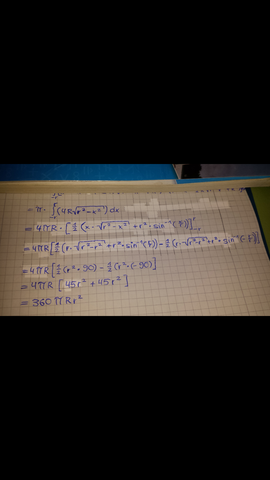 = π · ∫ (4R√r²-x²) dx
= 4πR · [½ (x · √r²-x² + r² · sin⁻¹(x/r))]
= 4πR [½ (r · √r²-r² + r² · sin⁻¹(r/r)) - ½ (r · √r²-r² + r² · sin⁻¹(-r/r))]
= 4πR [½ (r² · 90) - ½ (r² · (-90)]
= 4πR [45r² + 45r²]
= 360 πRr²